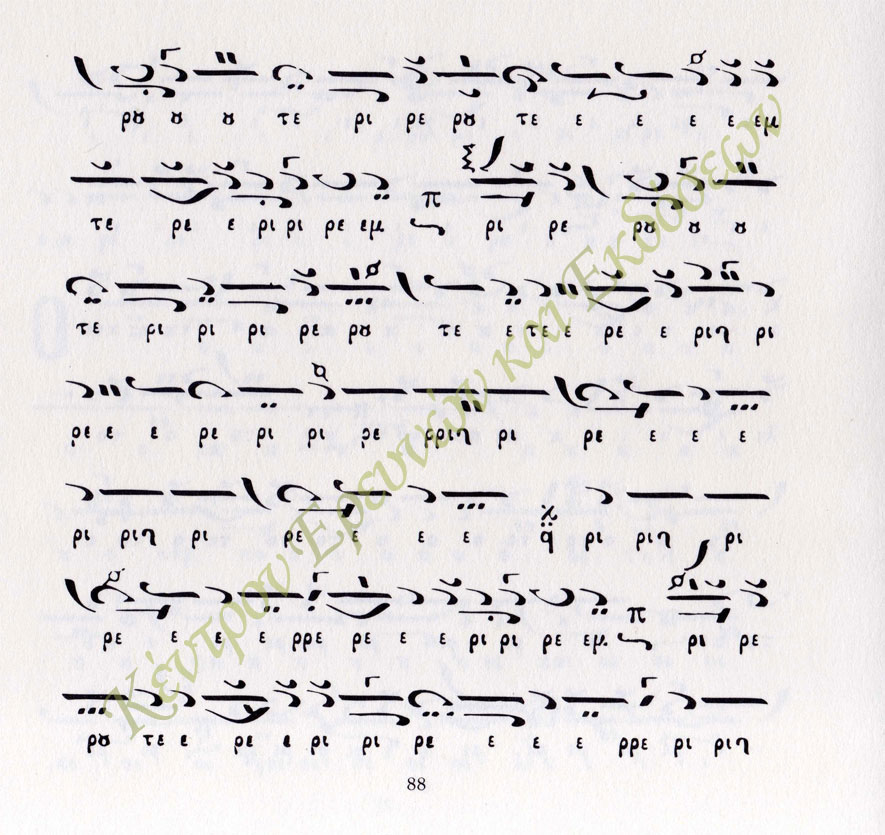 ρȣ ȣ ȣ τε ρι ρε ρȣ τε ε ε ε ε εμ
τε ρε ε ρι ρι ρε εμ π ρι ρε ρȣ ȣ ȣ
τε ρι ρι ρι ρε ρȣ τε ε τε ε ρε ε ριη ρι
ρε ε ε ρε ρι ρι ρε ρριη ρι ρε ε ε ε
ρι ριη ρι ρε ε ε ε q ρι ριη ρι
ρε ε ε ε ρρε ρε ε ε ρι ρι ρε εμ π ρι ρε
ρȣ τε ε ρε ε ρι ρι ρε ε ε ε ρρε ρι ριη
88
Κέντρου Ερευνών και Εκδόσεων